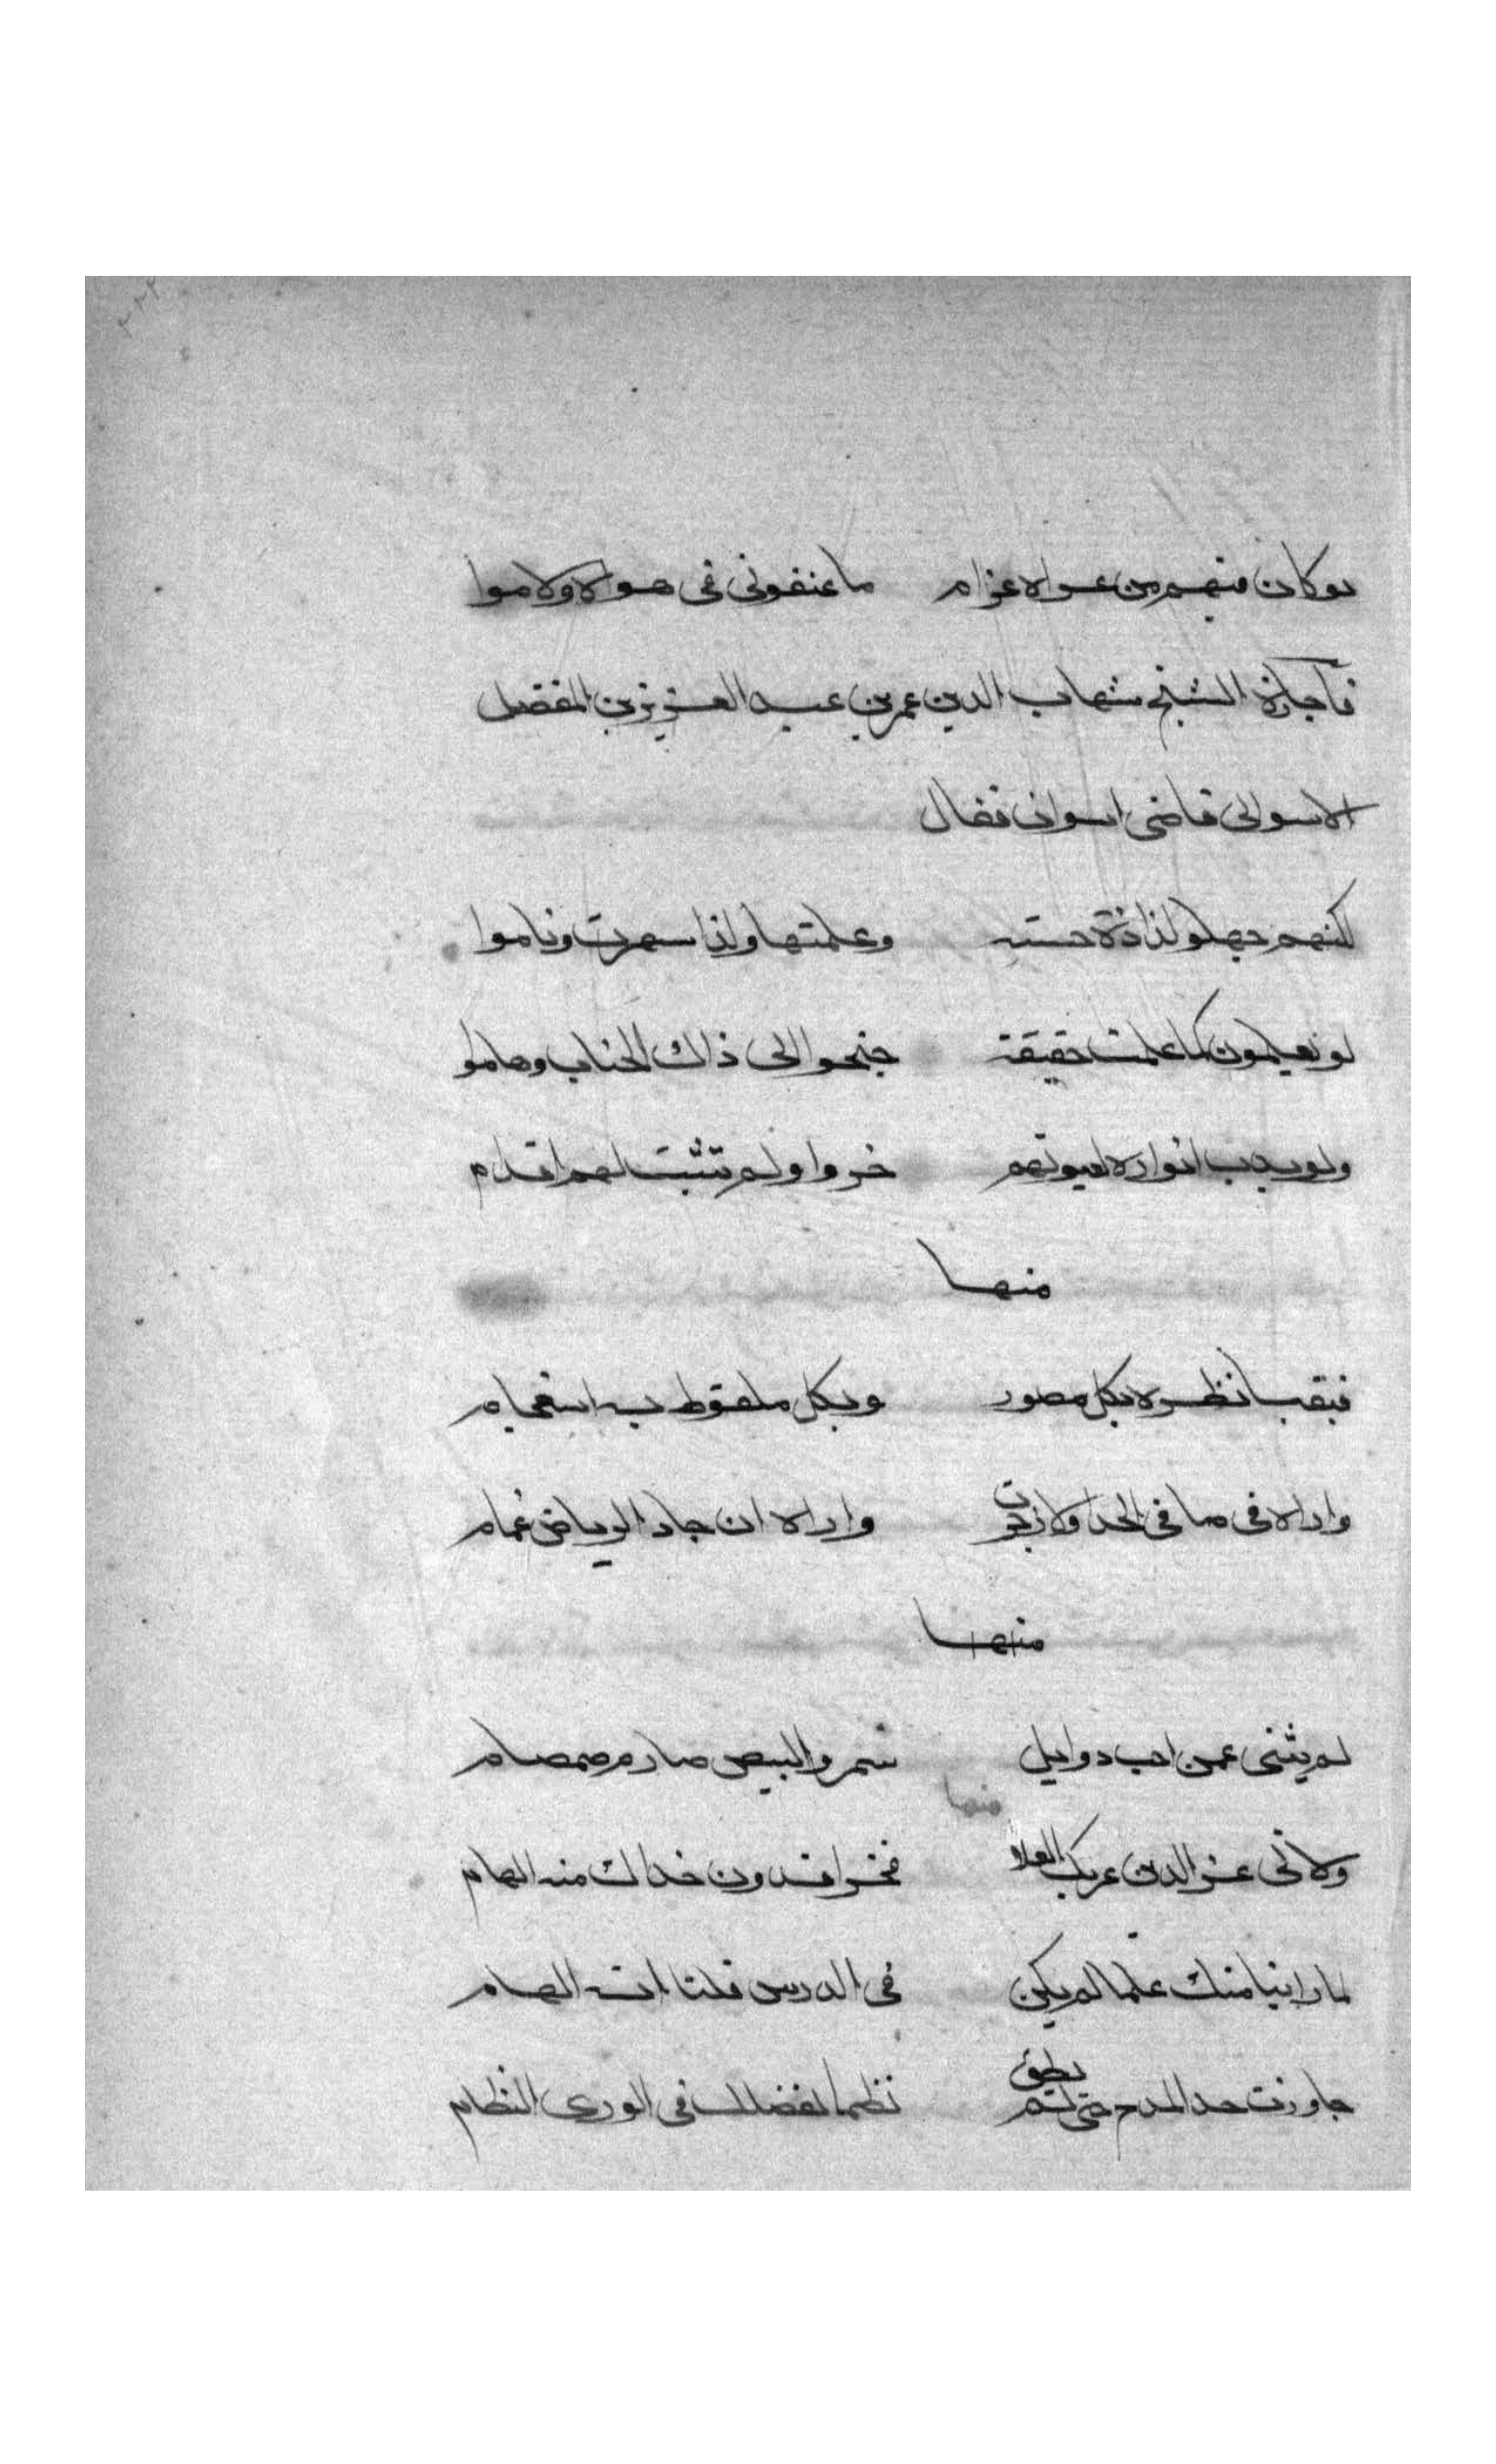 لو كان فيهم من عراه غرام ما عنفوني في هواه ولا موا
فاجازه الشيخ شهاب الدين عمر بن عبد العزيز بن المفضل
الاسواني قاضي اسوان فقال
لكنهم جهلو لذاذة حسنه وعلمتها ولذا سهرت وناموا
لو يعلمون كما علمت حقيقة جنحوا الى ذاك الجناب وهاموا
ولو بدت انواره لعيونهم خروا ولم تثبت لهم اقدام
منها
فبقيت انظره بكل مصور وبكل ملفوظ به استعجام
واراه في صافي الجداول ان جرت واراه ان جاد الرياض غمام
منها
لم يثنني عمن احب ذوابل سمر والبيض صارم صمصام
منها
ولاني عز الدين عز بك العلا فخرا فدون حذاك منه الهام
لما راينا منك علما لم يكن في الدرس قلنا انه الهام
جاوزت حد المدح حتى لم يطق نظما لفضلك في الورى النظام